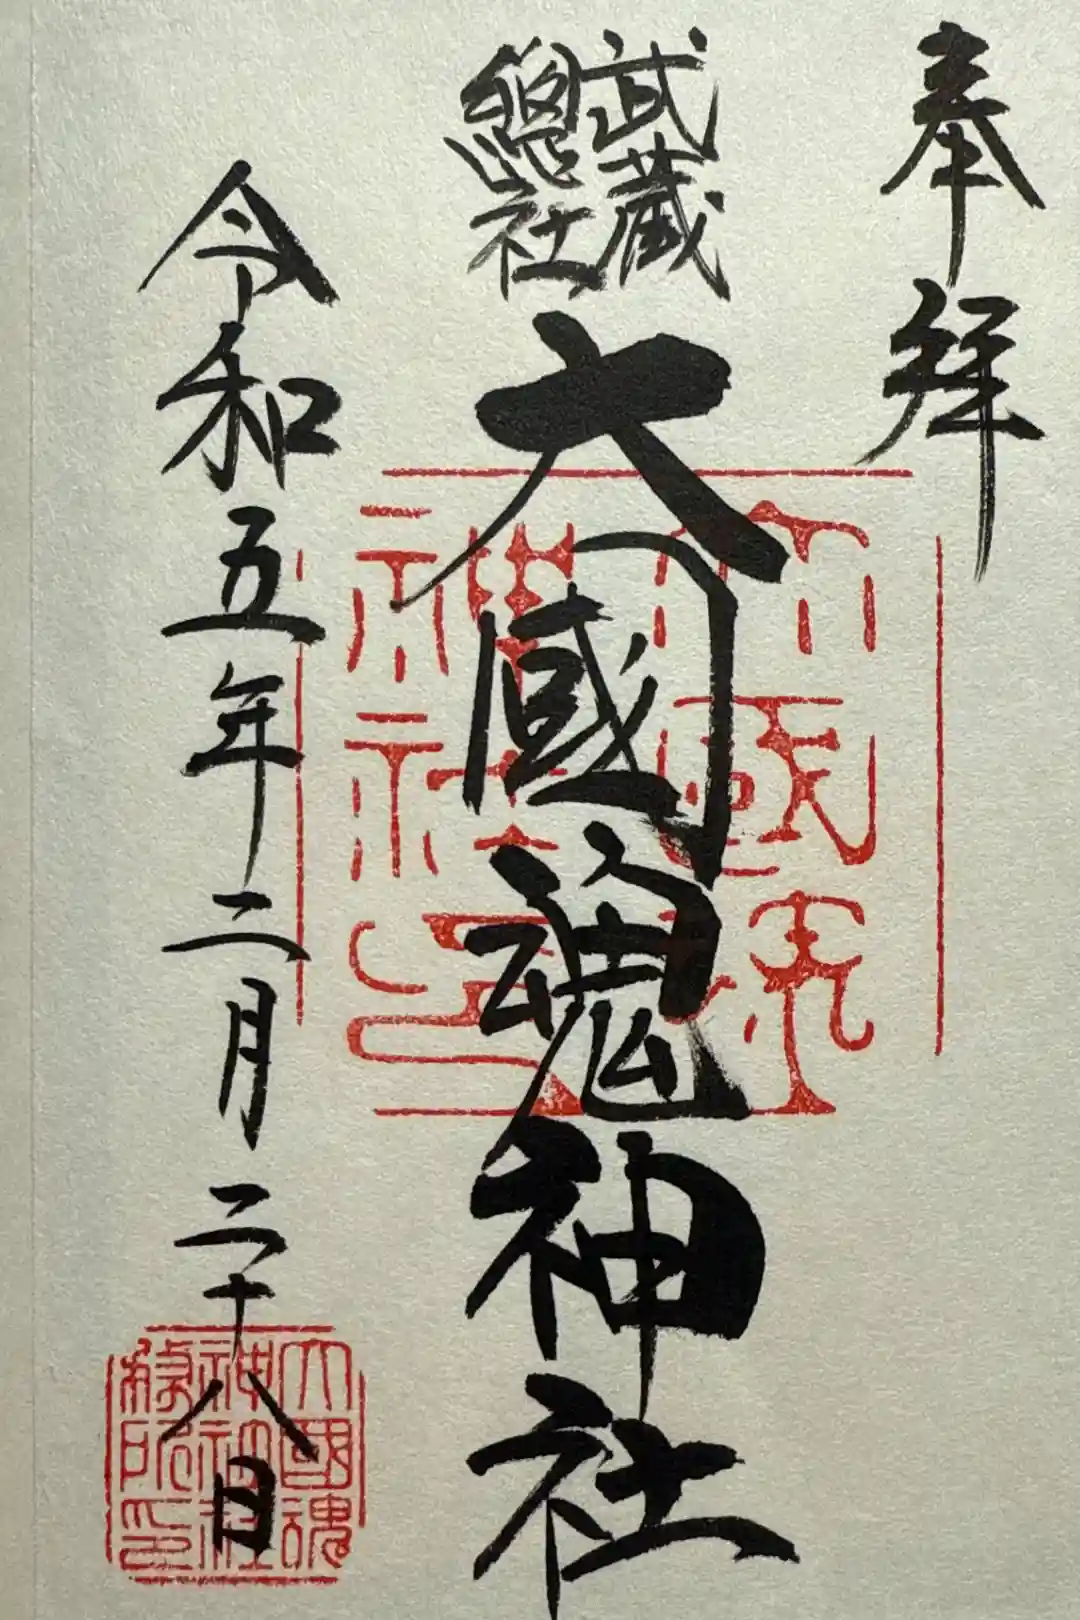 奉拝
武蔵
總社
大國魂神社
令和五年二月二十八日
大國魂
神社
務所印